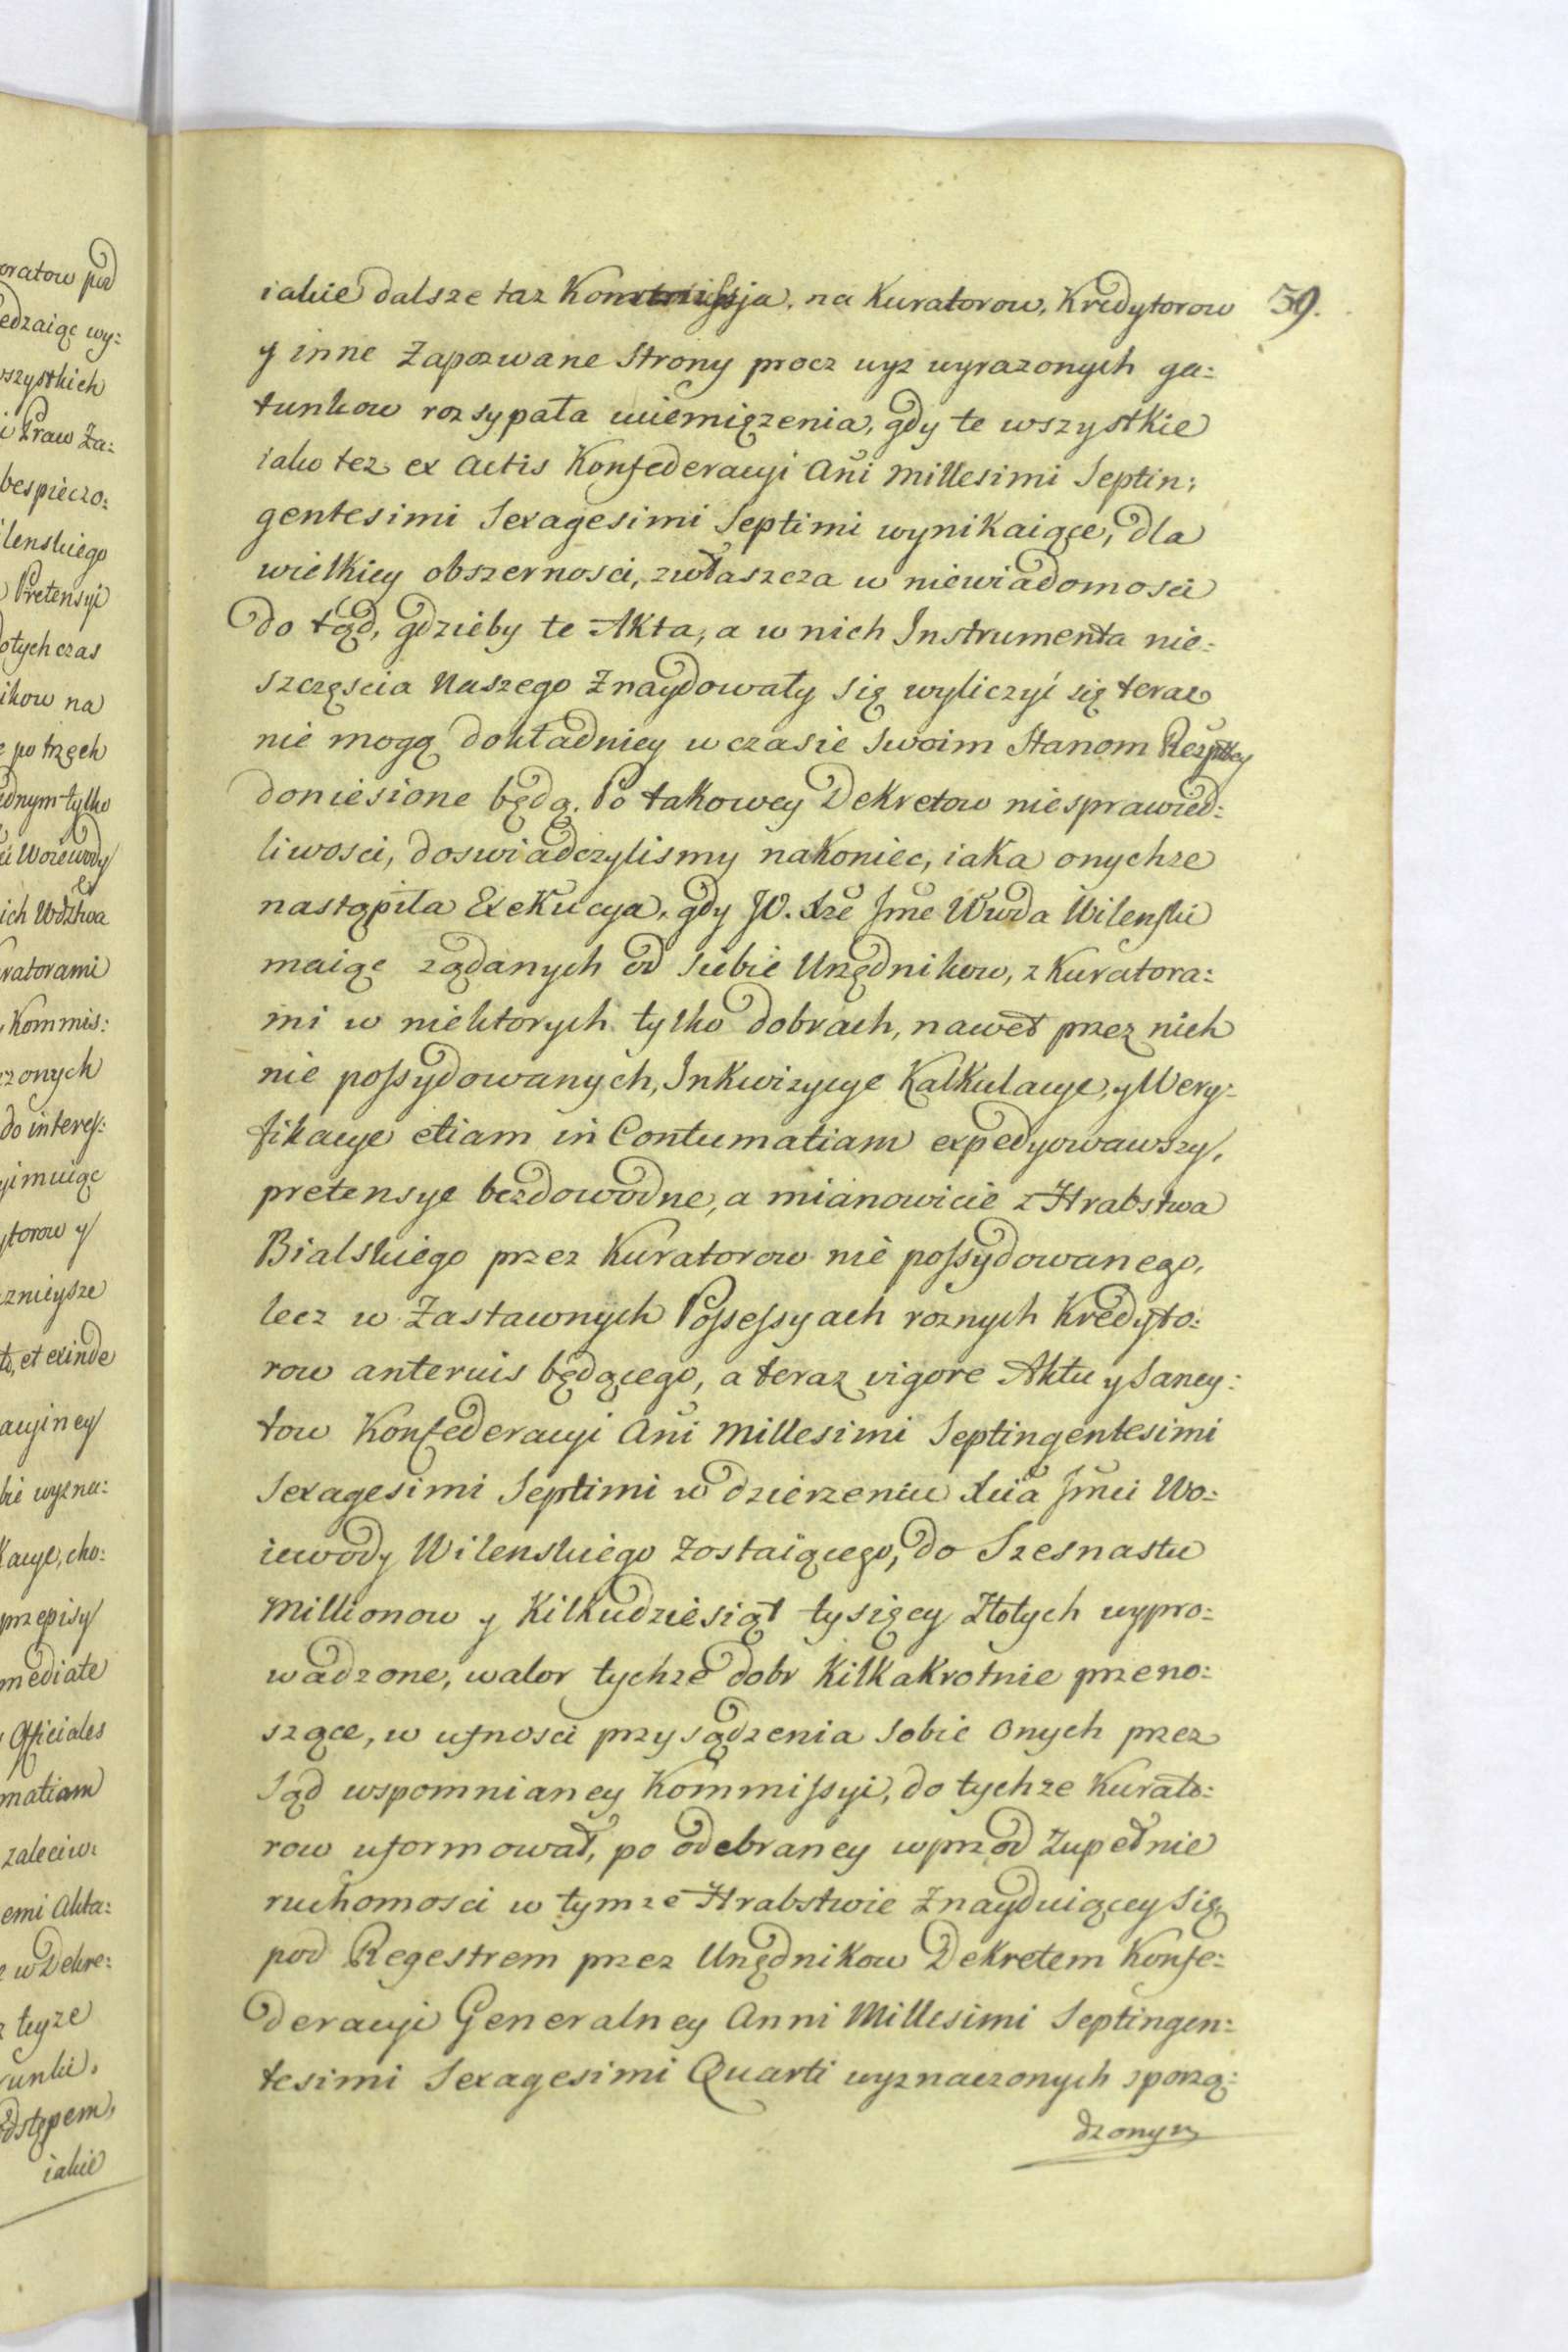 oratow pod
edzaiąc wy:
wszystkich
i Praw Za:
bespieczo:
ilenskiego
Pretensyi
dotychczas
ikow na
po trzech
ednym tylko
Woiewody
ich Wdztwa
ratorami
Kommis:
czonych
do interess:
yimuiąc
ytorow y
znieysze
et exinde
acyiney
bie wyzna:
kacye, cho:
przepisy
mediate
Officiales
matiam
zaleciw:
emi Akta:
w Dekre:
teyze
runki,
odstępem,
iakie
iakie dalsze taz Kommissja, na Kuratorow, Kredytorow 59.
y inne Zapozwane Strony procz wyz wyrazonych ga:
tunkow rozsypała uciemięzenia, gdy te wszystkie
iako tez ex Actis Konfederacyi Ani Millesimi Septin:
gentesimi Sexagesimi Septimi wynikaiące, dla
wielkiey obszernosci, zwłaszcza w niewiadomosci
do tąd, gdzieby te Akta, a w nich Instrumenta nie:
szczęscia Naszego Znaydowały się wyliczyć się teraz
nie mogą dokładniey w czasie swoim Stanom Rezpltey
doniesione będą. Po takowey Dekretow niesprawied:
liwosci, doswiadczylismy nakoniec, iaka onychze
nastąpiła Exekucya, gdy JO. Xze Jme Wwda Wilenski
maiąc ządanych od siebie Urzędnikow, z Kuratora:
mi w niektorych tylko dobrach, nawet przez nich
nie possydowanych, Inkwizycye Kalkulacye, y Wery:
fikacye etiam in Contumatiam expedyowawszy,
pretensye bezdowodne, a mianowicie z Hrabstwa
Bialskiego przez Kuratorow nie possydowanego,
lecz w Zastawnych Possessyach roznych Kredyto:
row anterius będącego, a teraz vigore Aktu y Sancy:
tow Konfederacyi Ani Millesimi Septingentesimi
Sexagesimi Septimi w dzierzeniu Xcia Jmci Wo:
iewody Wilenskiego Zostaiącego, do Szesnastu
Millionow y Kilkudziesiąt tysięcy Złotych wypro:
wadzone, walor tychze dobr Kilkakrotnie przeno:
szące, w ufnosci przysądzenia sobie Onych przez
Sąd wspomnianey Kommissyi, do tychze Kurato:
row uformował, po odebraney wprzod Zupełnie
ruchomosci w tymze Hrabstwie Znayduiącey się
pod Regestrem przez Urzędnikow Dekretem Konfe:
deracyi Generalney Anni Millesimi Septingen:
tesimi Sexagesimi Quarti wyznaczonych sporzą:
dzonym